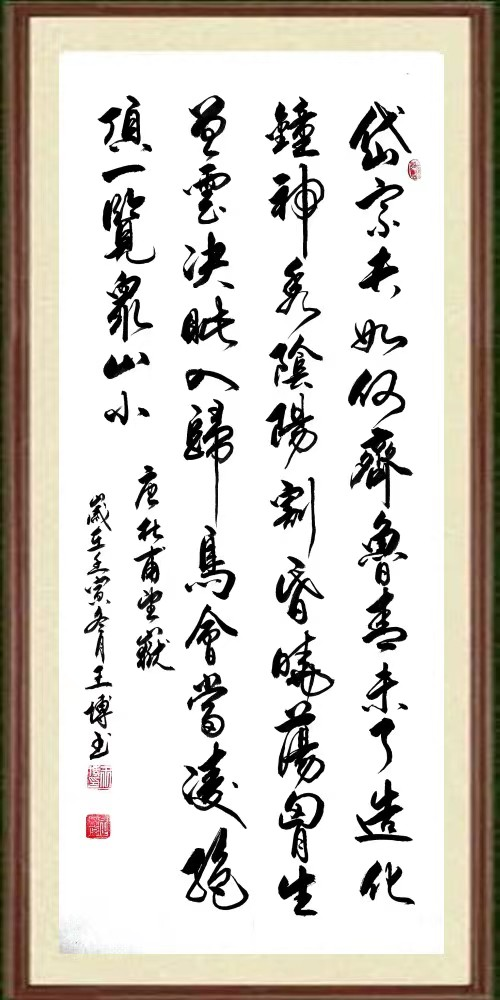 岱宗夫如何齊魯青未了造化
鐘神秀陰陽割昏曉蕩胷生
曾雲决眦入歸鳥會當凌絶
頂一覽衆山小
唐杜甫望嶽
歲在壬寅冬月王博書